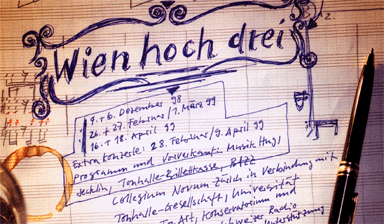 Wien hoch drei
4. + 6. Dezember 98
26. + 27. Februar / 7. März 99
16. + 18. April 99
Extrakonzerte: 28. Februar / 9. April 99
Programm und Vorverkauf: Musik Hug /
Jecklin, Tonhalle-Billettkasse, BiZZ
Collegium Novum Zürich in Verbindung mit
Tonhalle-Gesellschaft, Universität
Art, Konservatorium und
Schweizer Radio
Unterstützung